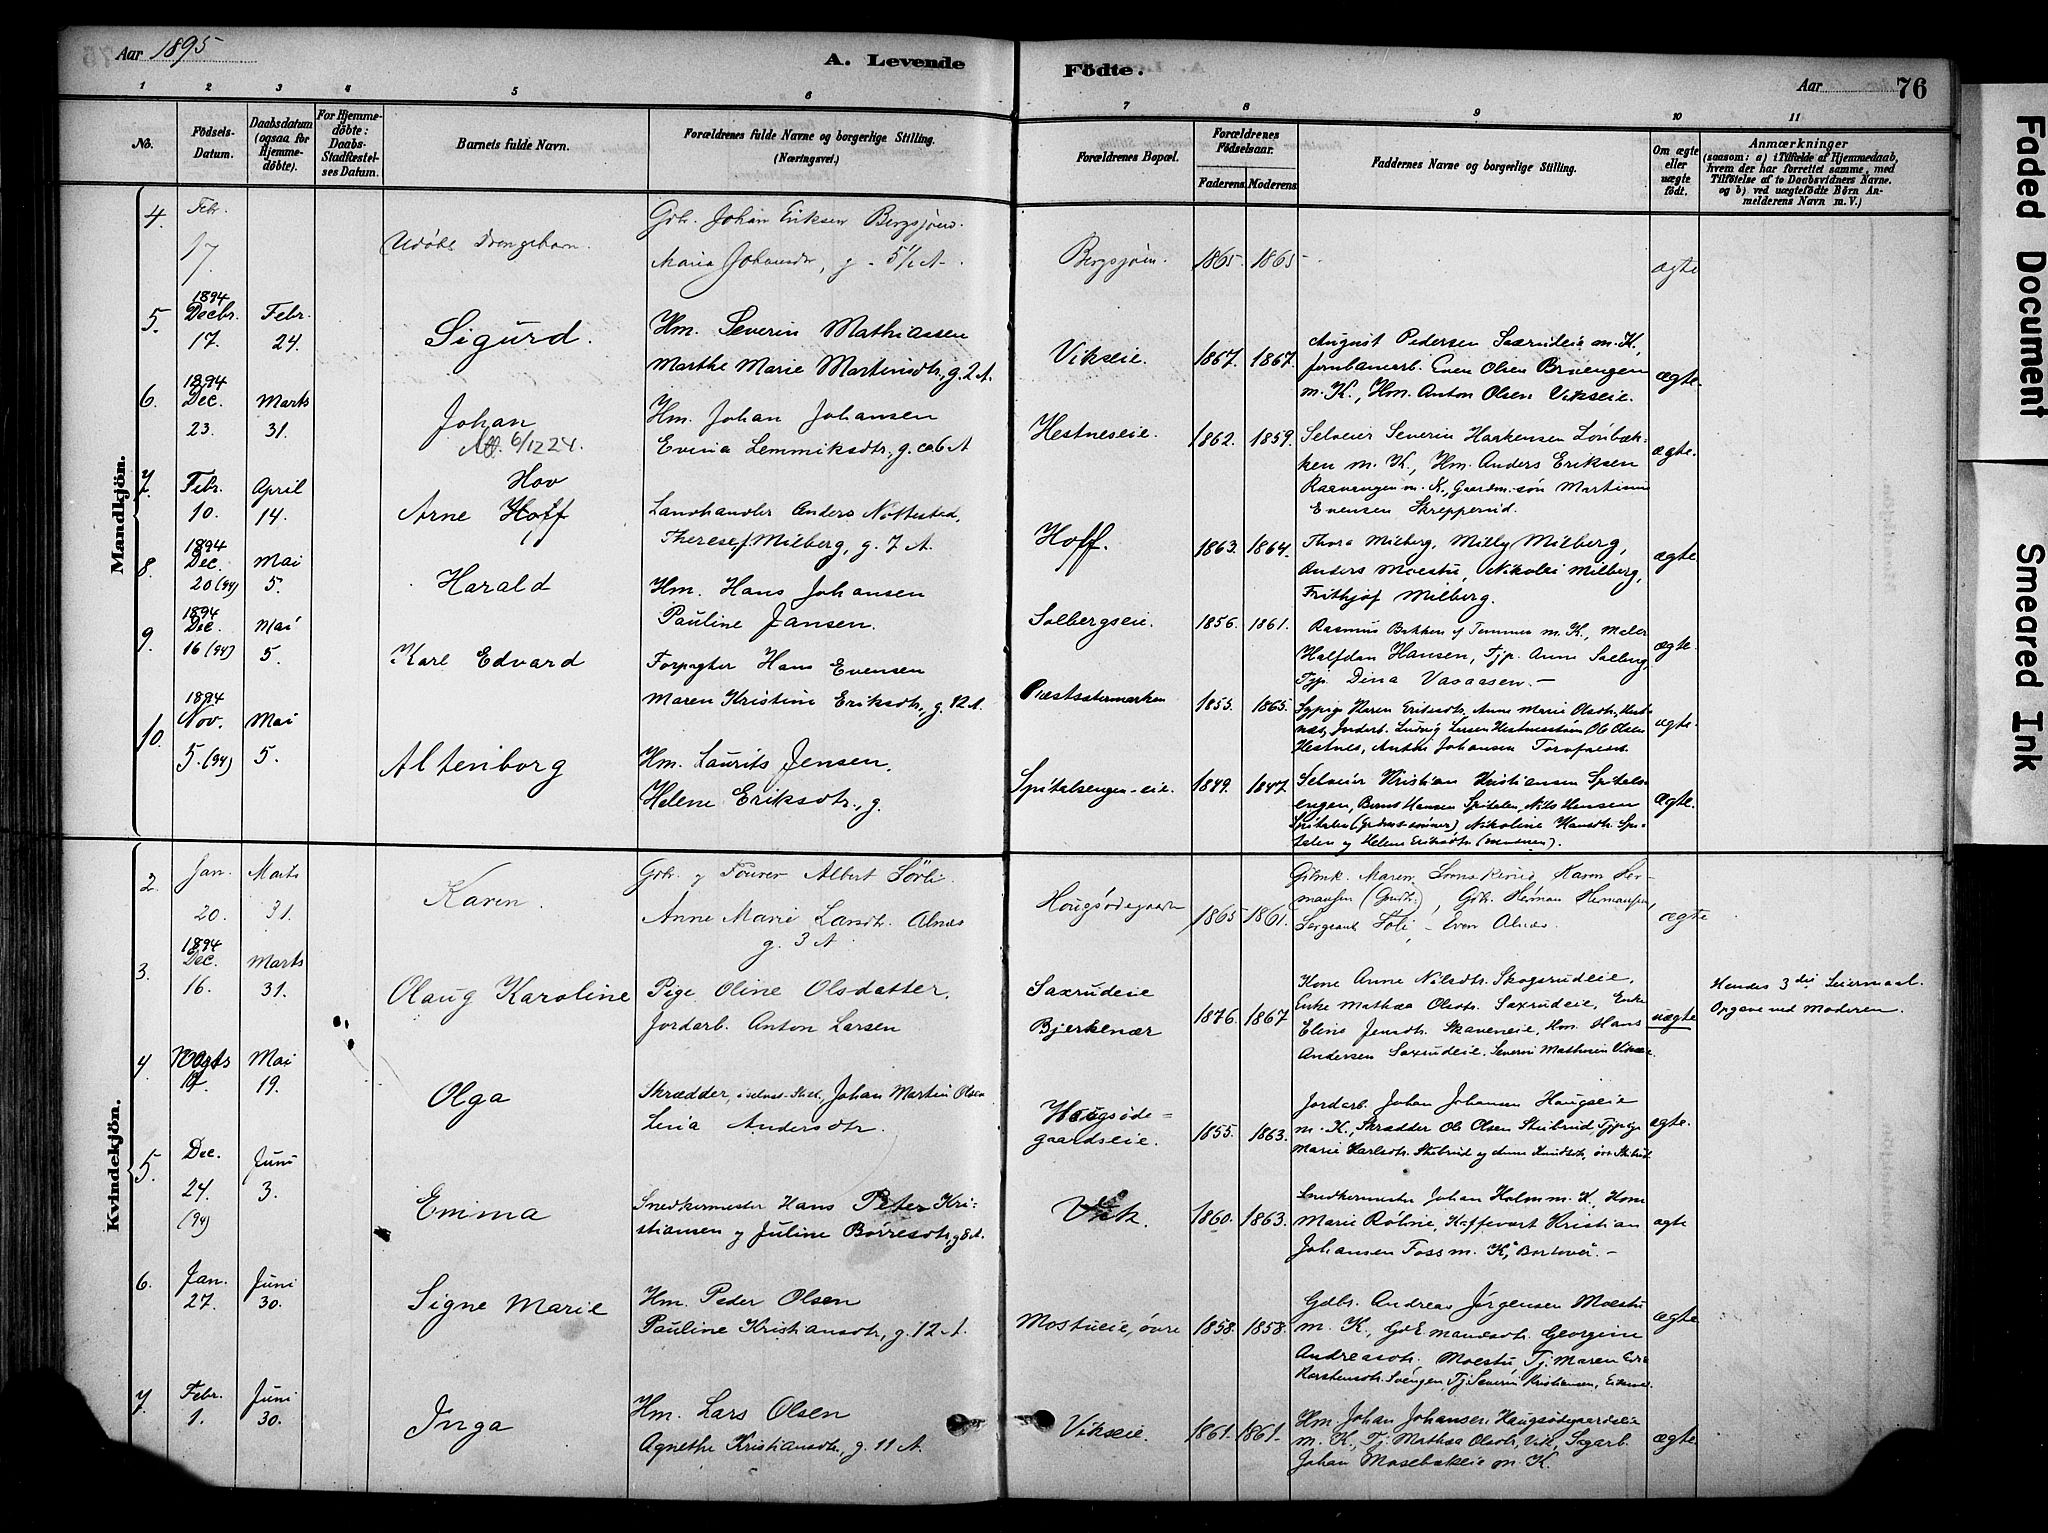 Aar 1895
A. Levende Födte.
Aar 76
1 2 3 4 5 6 7 8 9 10 11
No.
Födsels-Datum.
Daabsdatum (ogsaa for Hjemme-döbte).
For Hjemme-döbte: Daabs-Stadfæstel-ses Datum.
Barnets fulde Navn.
Forældrenes fulde Navne og borgerlige Stilling.
(Næringsvei.)
Forældrenes Bopæl.
Forældrenes Födselsaar.
Faderens. Moderens.
Faddernes Navne og borgerlige Stilling.
Om ægte eller uægte födt.
Anmærkninger
(saasom: a) i Tilfælde af Hjemmedaab,
hvem der har forrettet samme, med
Tilföielse af to Daabsvidners Navne.
og b) ved uægtefödte Börn An-
melderens Navn m. V.)
Mandkjön.
4 Febr. 17. Udøbt Drengebarn. Gbr. Johan Eriksen Bergsjøen.
Maria Johansdr, g. 5½ A. Bergsjøen. 1865. 1865 ægte
5. 1894 Decbr. 17. Febr. 24. Sigurd. Hm. Severin Mathiassen
Marthe Marie Martinsdtr., g. 2 A. Vikseie. 1867. 1867.
August Pedersen Saxrudeie m. K.,
Jernbanearb. Even Olsen Bruengen
m. K., Hm. Anton Olsen Vikseie. ægte.
6. 1894 Dec. 23. Marts 31. Johan 6/12 24. Hm. Johan Johansen
Evina Lemmiksdtr., g. ca 6 A Hestneseie. 1862. 1859.
Selveier Severin
m. K., Hm. Anders Eriksen
m. K., Gaardm.søn Martinus
Evensen Skrepperud. ægte.
7. Febr. 10. April 14. Hov
Arne Hoff Landhandler Anders Nøttestad,
Therese f. Milberg, g. 7 A. Hoff. 1863. 1864.
Thora Milberg, Milly Milberg,
Anders Moestu, Nikolai Milberg,
Frithjof Milberg. ægte
8. 1894 Dec. 20 (94) Mai 5. Harald Hm. Hans Johansen
Pauline Jansen. Solbergseie. 1856. 1861.
Rasmus Bakken m. K., Maler
Halfdan Hansen, Tjp. Anne Solberg,
Tjp. Dina Vasaasen. — ægte.
9. 1894 Dec. 16 (94) Mai 5. Karl Edvard Forpagter Hans Evensen
Maren Kristine Eriksdtr., g. 12 A. Præstsætermarken 1855. 1865.
Sypige Karen Eriksdtr., Anne Marie Olsdtr., Hest-
næs, Jordarb. Ludvig Larsen Ole Olsen
Hestnes, Anton Johansen ægte.
10. 1894 Nov. 5. (94) Mai 5. Altenborg Hm. Laurits Jensen.
Helene Eriksdtr., g. Spitalsengen-eie. 1849. 1847.
Selveier Kristian Kristiansen Spitals-
engen, Bernt Hansen Spitalen, Nils Hansen
Spitalen (Gdbrs.sønner), Nikoline Hansdtr. Spi-
talen og Helene Eriksdtr. (Moderen). ægte.
Kvindekjön.
2. Jan. 20. Marts 31. Karen. Gbr. og Fourer Albert Sørli.
Anne Marie Larsdtr. Alnæs
g. 3 A. Hougsødegaarden 1865 1861.
Gdbmk. Maren Karen Her-
mansen, Gbr. Herman Hermansen
Sergeant Even Alnæs. ægte
3. 1894 Dec. 16. Marts 31. Olaug Karoline Pige Oline Olsdatter.
Jordarb. Anton Larsen Saxrudeie
Bjerkenær 1876. 1867
Kone Anne Nilsdtr. Skogsrudeie,
Enke Mathea Olsdtr. Saxrudeie, Enke
Eline Jensdtr. Skaveneie, Hm. Hans
Andersen Saxrudeie, Severin Mathisen uægte
Hendes 3die Leiermaal.
Opgave ved Moderen.
4 Marts 17. Mai 19. Olga Skrædder, Johan Martin Olsen
Lina Andersdtr. Hougsøde-
gaardseie. 1855. 1863.
Jordarb. Johan Johansen Haugseie
m. K., Skrædder Ole Olsen Skibrud, Tjpige
Marie Karlsdtr. Skibrud og Anne Knudsdtr. øvr. Skibrud ægte.
5. Dec. 24. (94) Juni 3. Emma Snedkermester Hans Peter Kri-
stiansen og Juline Børresdtr., g 8 A. Vik. 1860. 1863.
Snedkermester Johan Holm m. K., Kone
Marie Røhne, Kaffevert Kristian
Johansen Foss m. K., ægte
6. Jan. 27. Juni 30. Signe Marie Hm. Peder Olsen
Pauline Kristiansdtr., g. 12 A. Mostueie, øvre 1858. 1858.
Gdbr. Andreas Jørgensen Moestu
m. K., Gdrmandsdtr. Georgine
Andreasdtr. Moestu, Tj. Maren
Karstensdtr. Svengen, Tj. Severin Kristiansen, ægte
7 Febr. 1. Juni 30. Inga Hm. Lars Olsen
Agnethe Kristiansdtr., g. 11 A. Vikseie. 1861. 1861.
Hm. Johan Johansen Haugsødegaardseie
m. K., Tj. Mathea Olsdtr. Vik, Sagarb.
Johan Mosebækeie m. K. ægte.
Faded Document
Smeared Ink